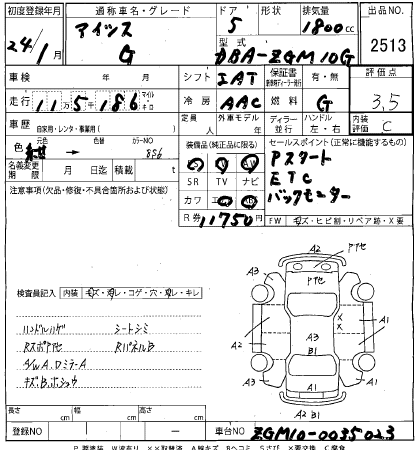 初度登録年月 通称車名・グレード ドア 形状 排気量 出品NO.
24/1月 アイシス G 5 1800cc 2513
型式 DBA-ZGM10G
車検 年 月 シフト IAT 保証書 有・無 評価点
走行 11万5千186 マイル キロ 冷房 AAC 燃料 G 3.5
車歴 自家用・レンタ・事業用( ) 定員 人 外車モデル 年 ディーラー 並行 ハンドル 左・右 内装評価 C
色 元色 → 色替 カラーNO 856 装備品(純正品に限る) セールスポイント(正常に機能するもの)
名義変更期限 月 日迄 積載 t SR TV ナビ Pスタート
注意事項(欠品・修復・不具合箇所および状態) カワ ETC
R券 11750円 バックモニター
FW キズ・ヒビ割・リペア跡・X要
検査員記入 内装 キズ・汚レ・コゲ・穴・取・キレ
ハンドルハゲ シートシミ
RスポアサビA RパネルB
A/W A、DミラーA
キズ、B、ホシュウ
A2 A3 A1 A2 A3 X X A3 B1 A1 A1 A3 A2 B1
長さ cm 幅 cm 高さ cm
登録NO ー 車台NO ZGM10-0035023
P.要塗装 W波有り XX取替済 A線キズ Bヘコミ Sさび X要交換 C腐食